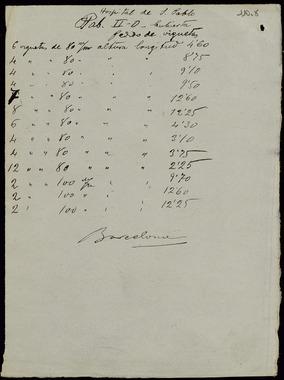 Hospital de S. Pablo
Pab. II-O - Cubierta
Pedido de viguetas
6 viguetas de 80 m/m altura longitud 4'60
4 " " 80 " " 8'75
4 " " 80 " " 9'10
4 " " 80 " " 9'50
7 " " 80 " " 12'60
8 " " 80 " " 12'25
6 " " 80 " " 4'30
4 " " 80 " " 3'10
4 " " 80 " " 3'75
12 " " 80 " " 2'25
2 " " 100 m/m " " 9'70
2 " " 100 " " 12'60
2 " " 100 " " 12'25
Barcelona